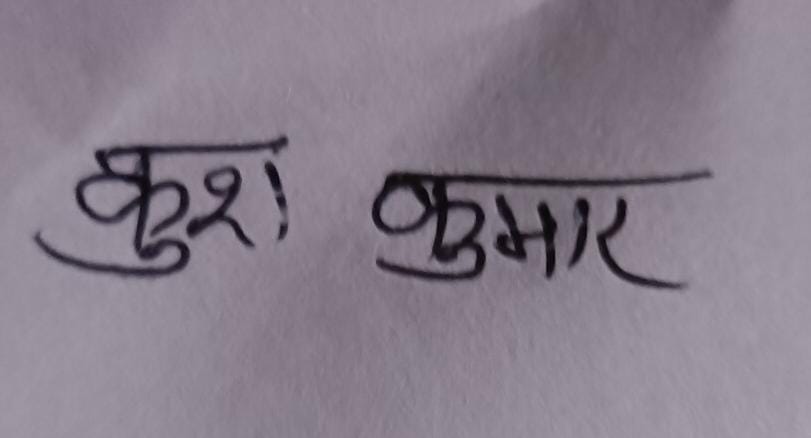 कुश कुमार